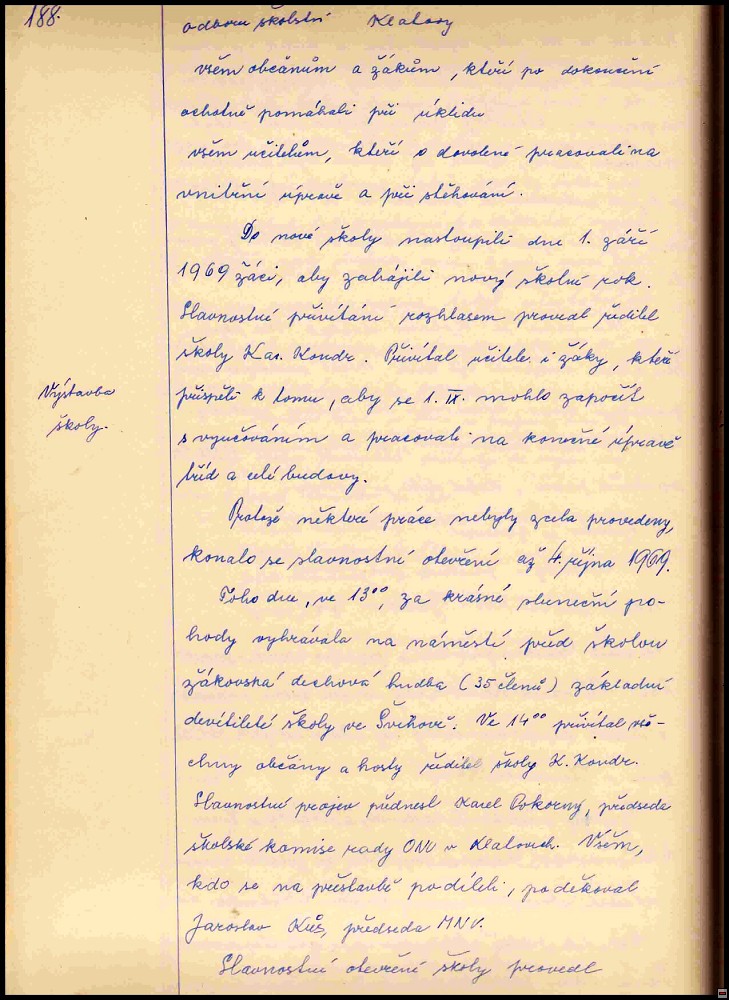 188.
odboru školství Klatovy
všem občanům a žákům, kteří po dokončení
ochotně pomáhali při úklidu
všem učitelům, kteří o dovolené pracovali na
vnitřní úpravě a při stěhování.
Do nové školy nastoupili dne 1. září
1969 žáci, aby zahájili nový školní rok.
Slavnostní přivítání rozhlasem provedl ředitel
školy Kar. Kondr. Přivítal učitele i žáky, kteří
Výstavba
školy.
přispěli k tomu, aby se 1. IX. mohlo započít
s vyučováním a pracovali na konečné úpravě
tříd a celé budovy.
Protože některé práce nebyly zcela provedeny,
konalo se slavnostní otevření až 4. října 1969.
Toho dne, ve 13⁰⁰, za krásné sluneční po-
hody vyhrávala na náměstí před školou
žákovská dechová hudba (35 členů) základní
devítileté školy ve Švihově. Ve 14⁰⁰ přivítal vše-
chny občany a hosty ředitel školy K. Kondr.
Slavnostní projev přednesl Karel Pokorný, předseda
školské komise rady ONV v Klatovech. Všem,
kdo se na přístavbě podíleli, poděkoval
Jaroslav Kůs, předseda MNV.
Slavnostní otevření školy provedl